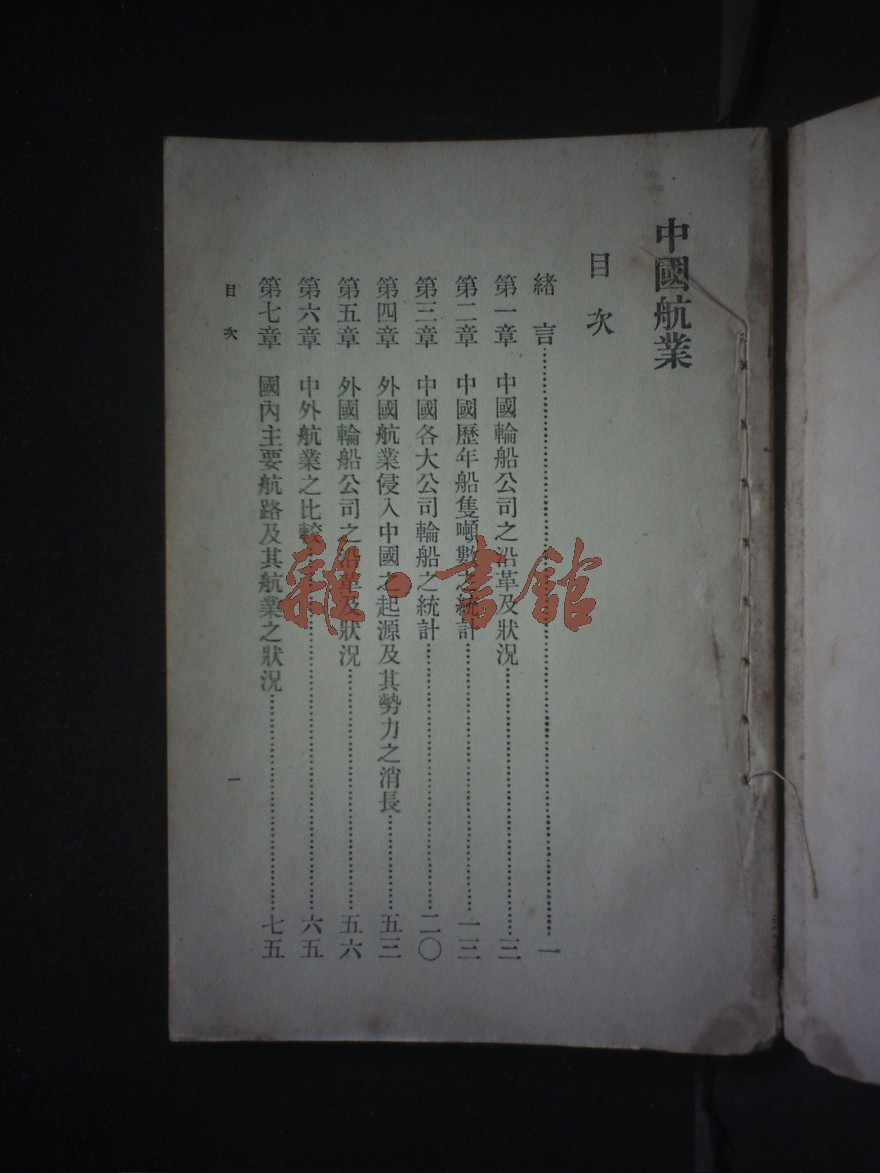 中國航業
目次
緒言…………一
第一章 中國輪船公司之沿革及狀況…………三
第二章 中國歷年船隻噸數之統計…………一三
第三章 中國各大公司輪船之統計…………二〇
第四章 外國航業侵入中國之起源及其勢力之消長…………五三
第五章 外國輪船公司之沿革及狀況…………五六
第六章 中外航業之比較…………六五
第七章 國內主要航路及其航業之狀況…………七五
目次
一
雜·書館